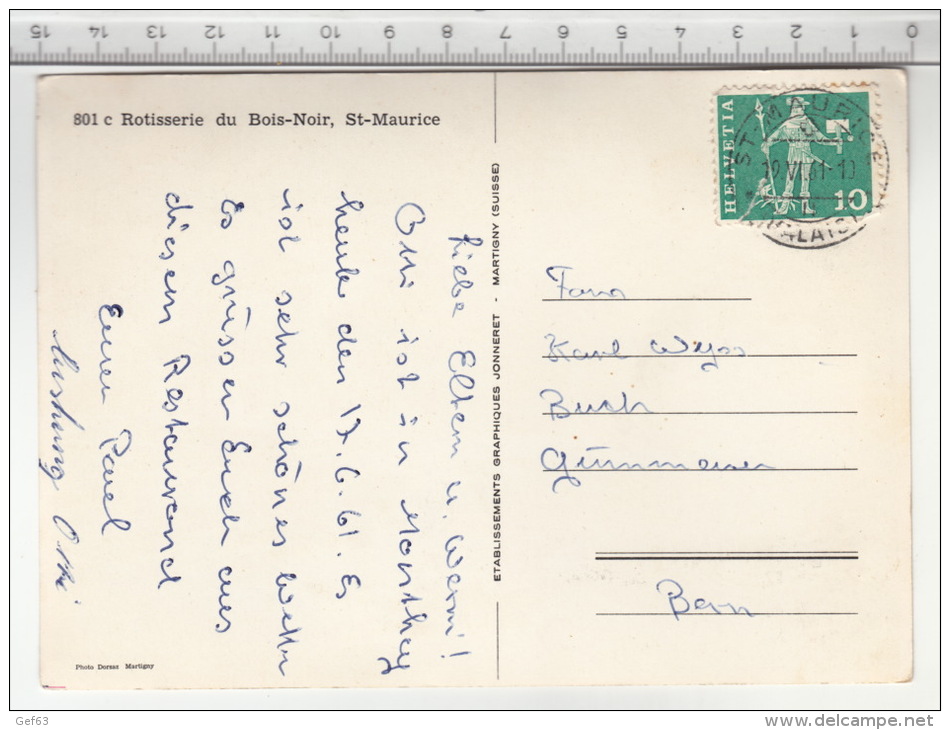 15 14 13 12 11 10 9 8 7 6 5 4 3 2 1 0
801 c Rotisserie du Bois-Noir, St-Maurice
HELVETIA
10
ST-MAURICE
19.VI.61-10
(VALAIS)
Liebe Eltern u. Werni!
Otti ist in Monthey
heute den 17.6.61. Es
ist sehr schönes Wetter
Es grüssen Euch aus
diesem Restaurand
Euren Paul
Otti
ETABLISSEMENTS GRAPHIQUES JONNERET - MARTIGNY (SUISSE)
Fam
Karl Wyss
Buch
Bern
Photo Dorsaz Martigny
Gef63
www.delcampe.net